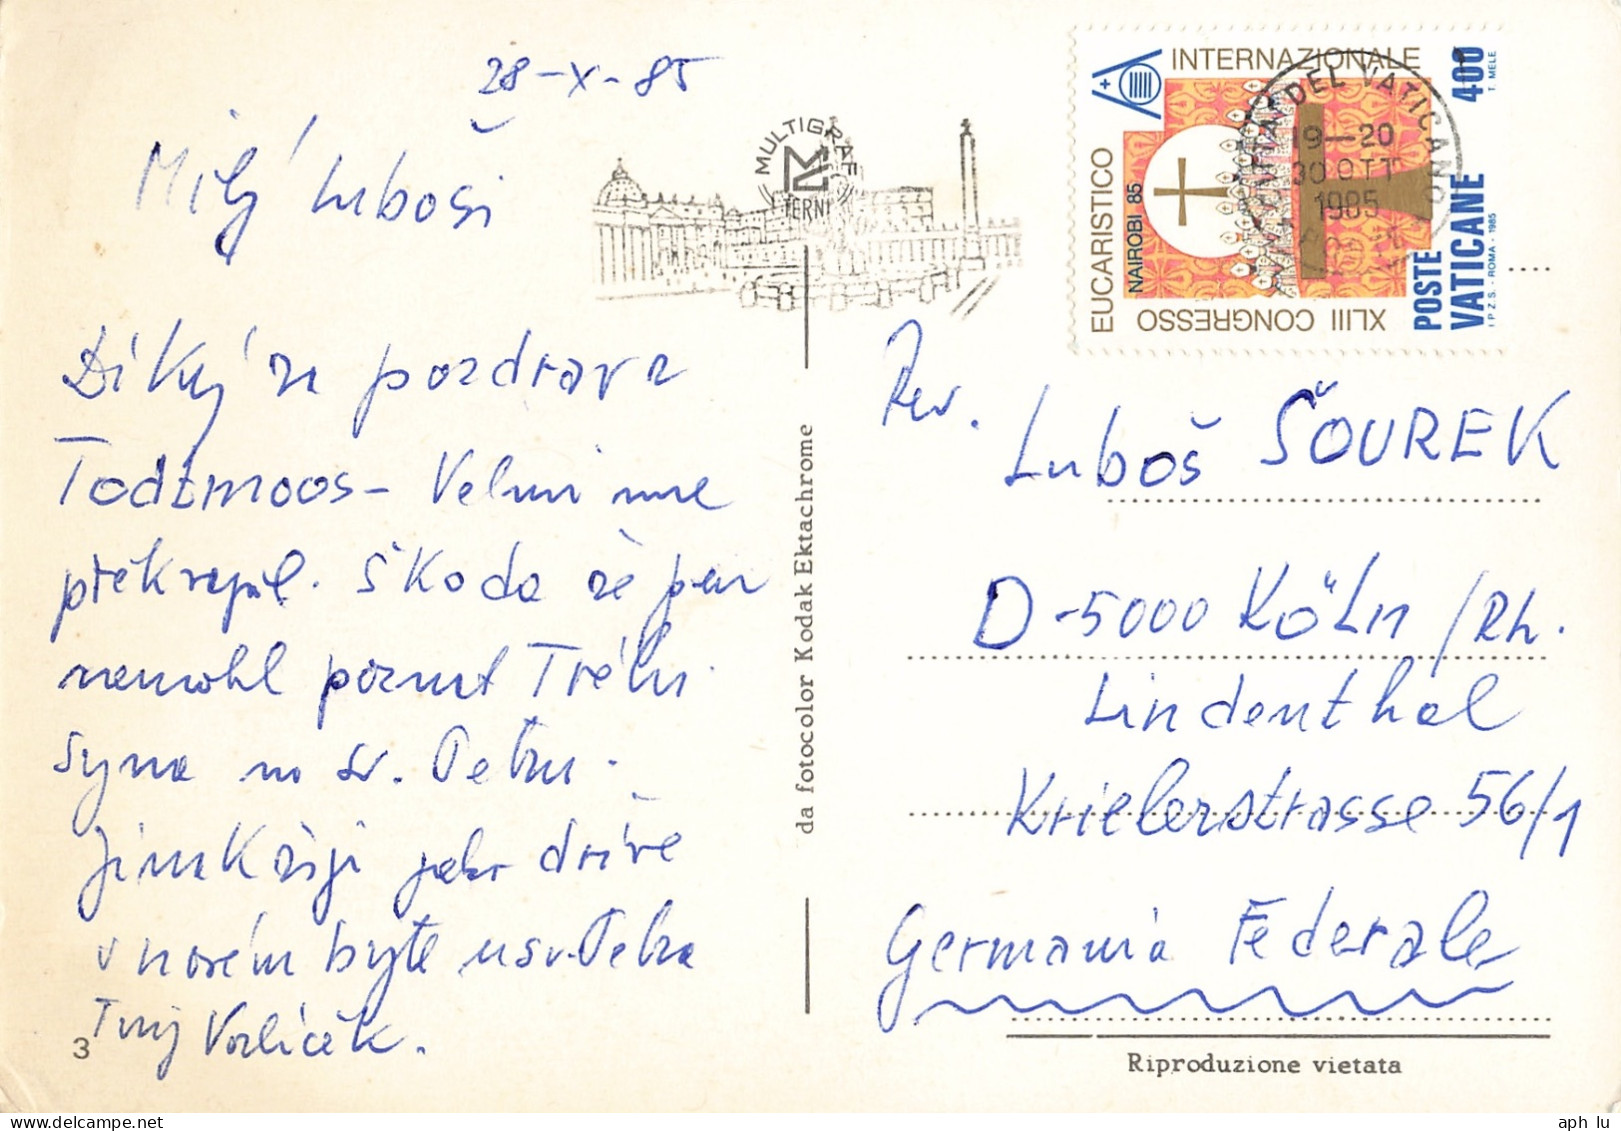 28-X-85
Milý Luboši
Díky za pozdrav z
Todtmoos - Velmi mne
překvapil. Škoda že jsem
nemohl poznat Tvého
syna na sv. Petru.
Jinak žiji jako dříve
v novém bytě u sv. Petra
Tvůj Vorlíček.
3
MULTIGRAF
TERNI
da fotocolor Kodak Ektachrome
INTERNAZIONALE
EUCARISTICO
NAIROBI 85
XLIII CONGRESSO
POSTE
VATICANE
400
T. MELE
I.P.Z.S. - ROMA - 1985
DEL VATICANO
19-20
30 OTT
1985
Rev. Luboš ŠOUREK
D-5000 KÖLN /Rh.
Lindenthal
Krielerstrasse 56/1
Germania Federale
Riproduzione vietata
aph lu